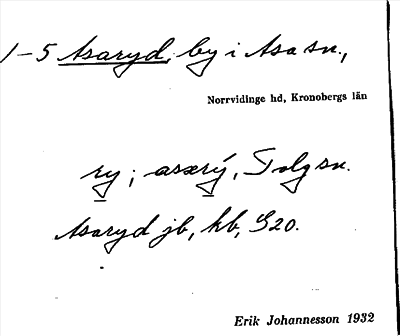 1-5 Asaryd, by i Asa sn.,
Norrvidinge hd, Kronobergs län
ry; asarý, Tolg sn.
Asaryd jb, kb, G20.
Erik Johannesson 1932